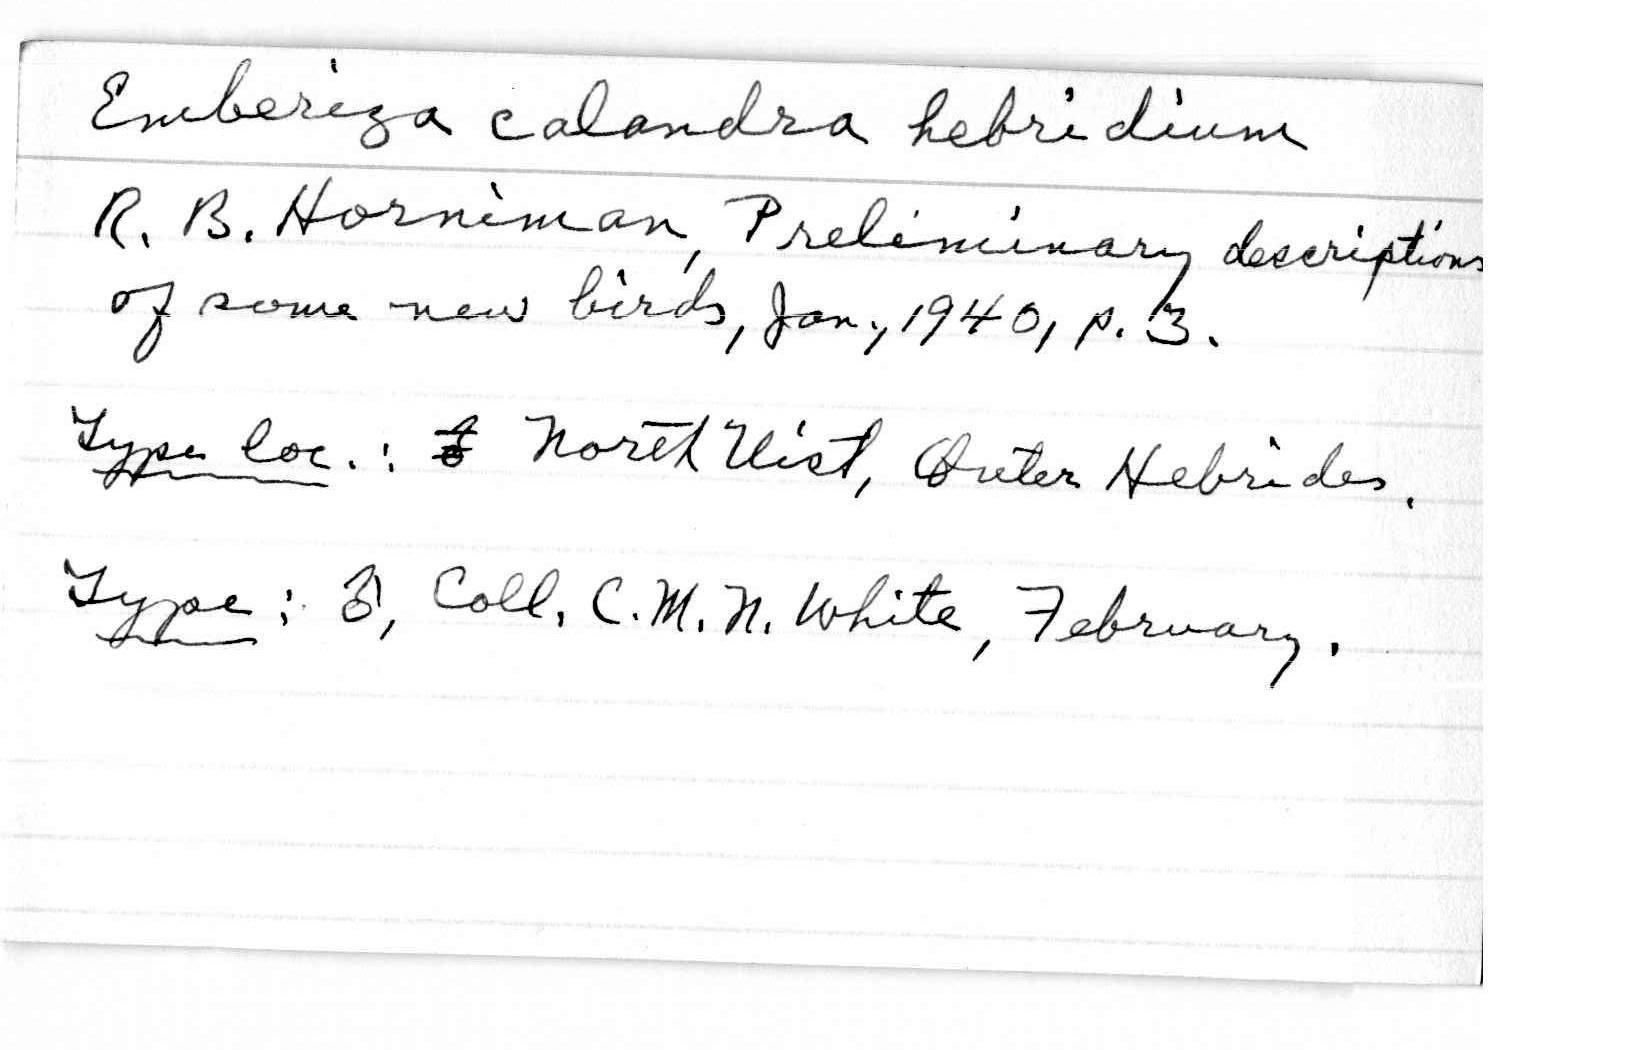 Emberiza calandra hebridium
R. B. Horniman, Preliminary descriptions
of some new birds, Jan., 1940, p. 3.
Type loc.: North Uist, Outer Hebrides.
Type: ♂, Coll. C. M. N. White, February.